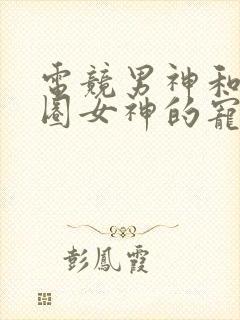 電競男神和
圈女神的寵
彭鳳霞